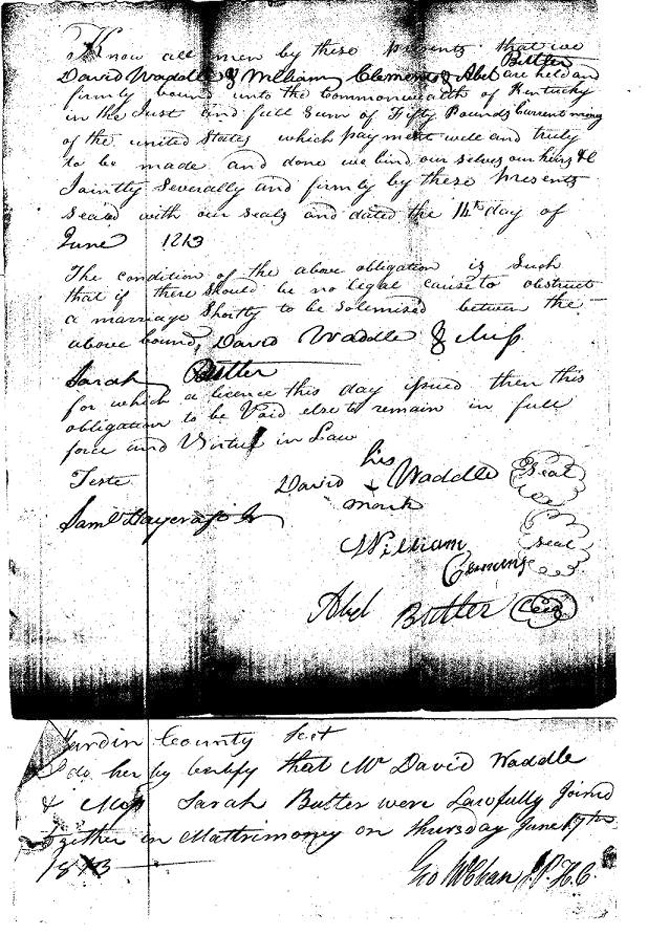 Know all men by these presents that we
David Waddle & William Clements & Abel Butler are held and
firmly bound unto the Commonwealth of Kentucky
in the Just and full Sum of Fifty Pounds Current mony
of the united States which payment well and truly
to be made and done we bind our selves our heirs &c
Jointly Severally and firmly by these presents
Seald with our seals and dated the 14th day of
June 1813
The condition of the above obligation is Such
that if there should be no legal cause to obstruct
a marriage Shortly to be Solemised between the
above bound, David Waddle & Miss
Sarah Butler
for which a licence this day issued then this
obligation to be Void else to remain in full
force and Virtue in Law
Teste
Saml Haycraft Jr
his
David + Waddle Seal
mark
William Seal
Clemens
Abel Butler Seal
Hardin County Sct
I do her by Certify that Mr David Waddle
& Miss Sarah Butler were Lawfully Joined
together in Mattrimoney on thursday June 17th
1813
Geo J.P.H.C.